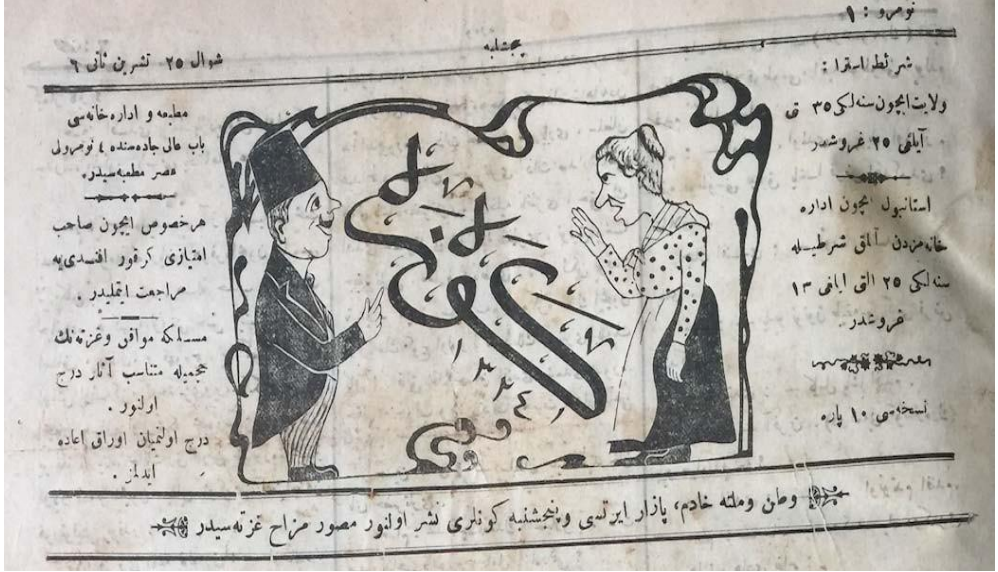 نومرو : ١
پنجشنبه
شوال ٢٥ تشرین ثانی ٦
شرائط اشترا :
ولایت ایچون سنه لكی ٣٥
آیلغی ٢٥ غروشدر
استانبول ایچون اداره
خانه مزدن آلمق شرطیسله
سنه لكی ٢٥ التی ایلغی ١٣
غروشدر
نسخه سی ١٠ پاره
١٣٢٤
مطبعه و اداره خانه سی
باب عالی جاده سنده ٤ نومرولی
عصر مطبعه سیدر
هر خصوص ایچون صاحب
امتیازی كرقور افندی یه
مراجعت ایتملیدر .
مسلكه موافق و غزته نك
حجمیله متناسب آثار درج
اولنور .
درج اولنمیان اوراق اعاده
ایدلمز .
وطن و ملته خادم، پازار ایرتسی و پنجشنبه كونلری نشر اولنور مصور مزاح غزته سیدر